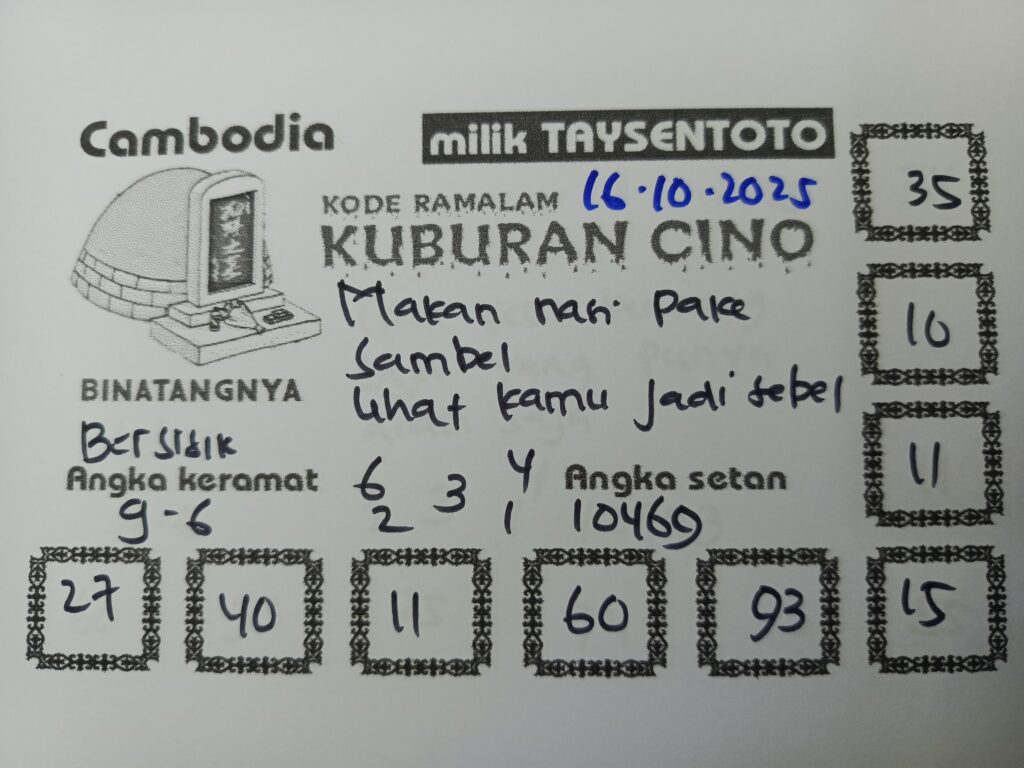 Cambodia
milik TAYSENTOTO
KODE RAMALAM 16.10.2025
KUBURAN CINO
Makan nasi pake
sambel
lihat kamu jadi sebel
BINATANGNYA
Bersisik
Angka keramat
9-6
6 3 4
2 1
Angka setan
10469
35
10
11
27 40 11 60 93 15